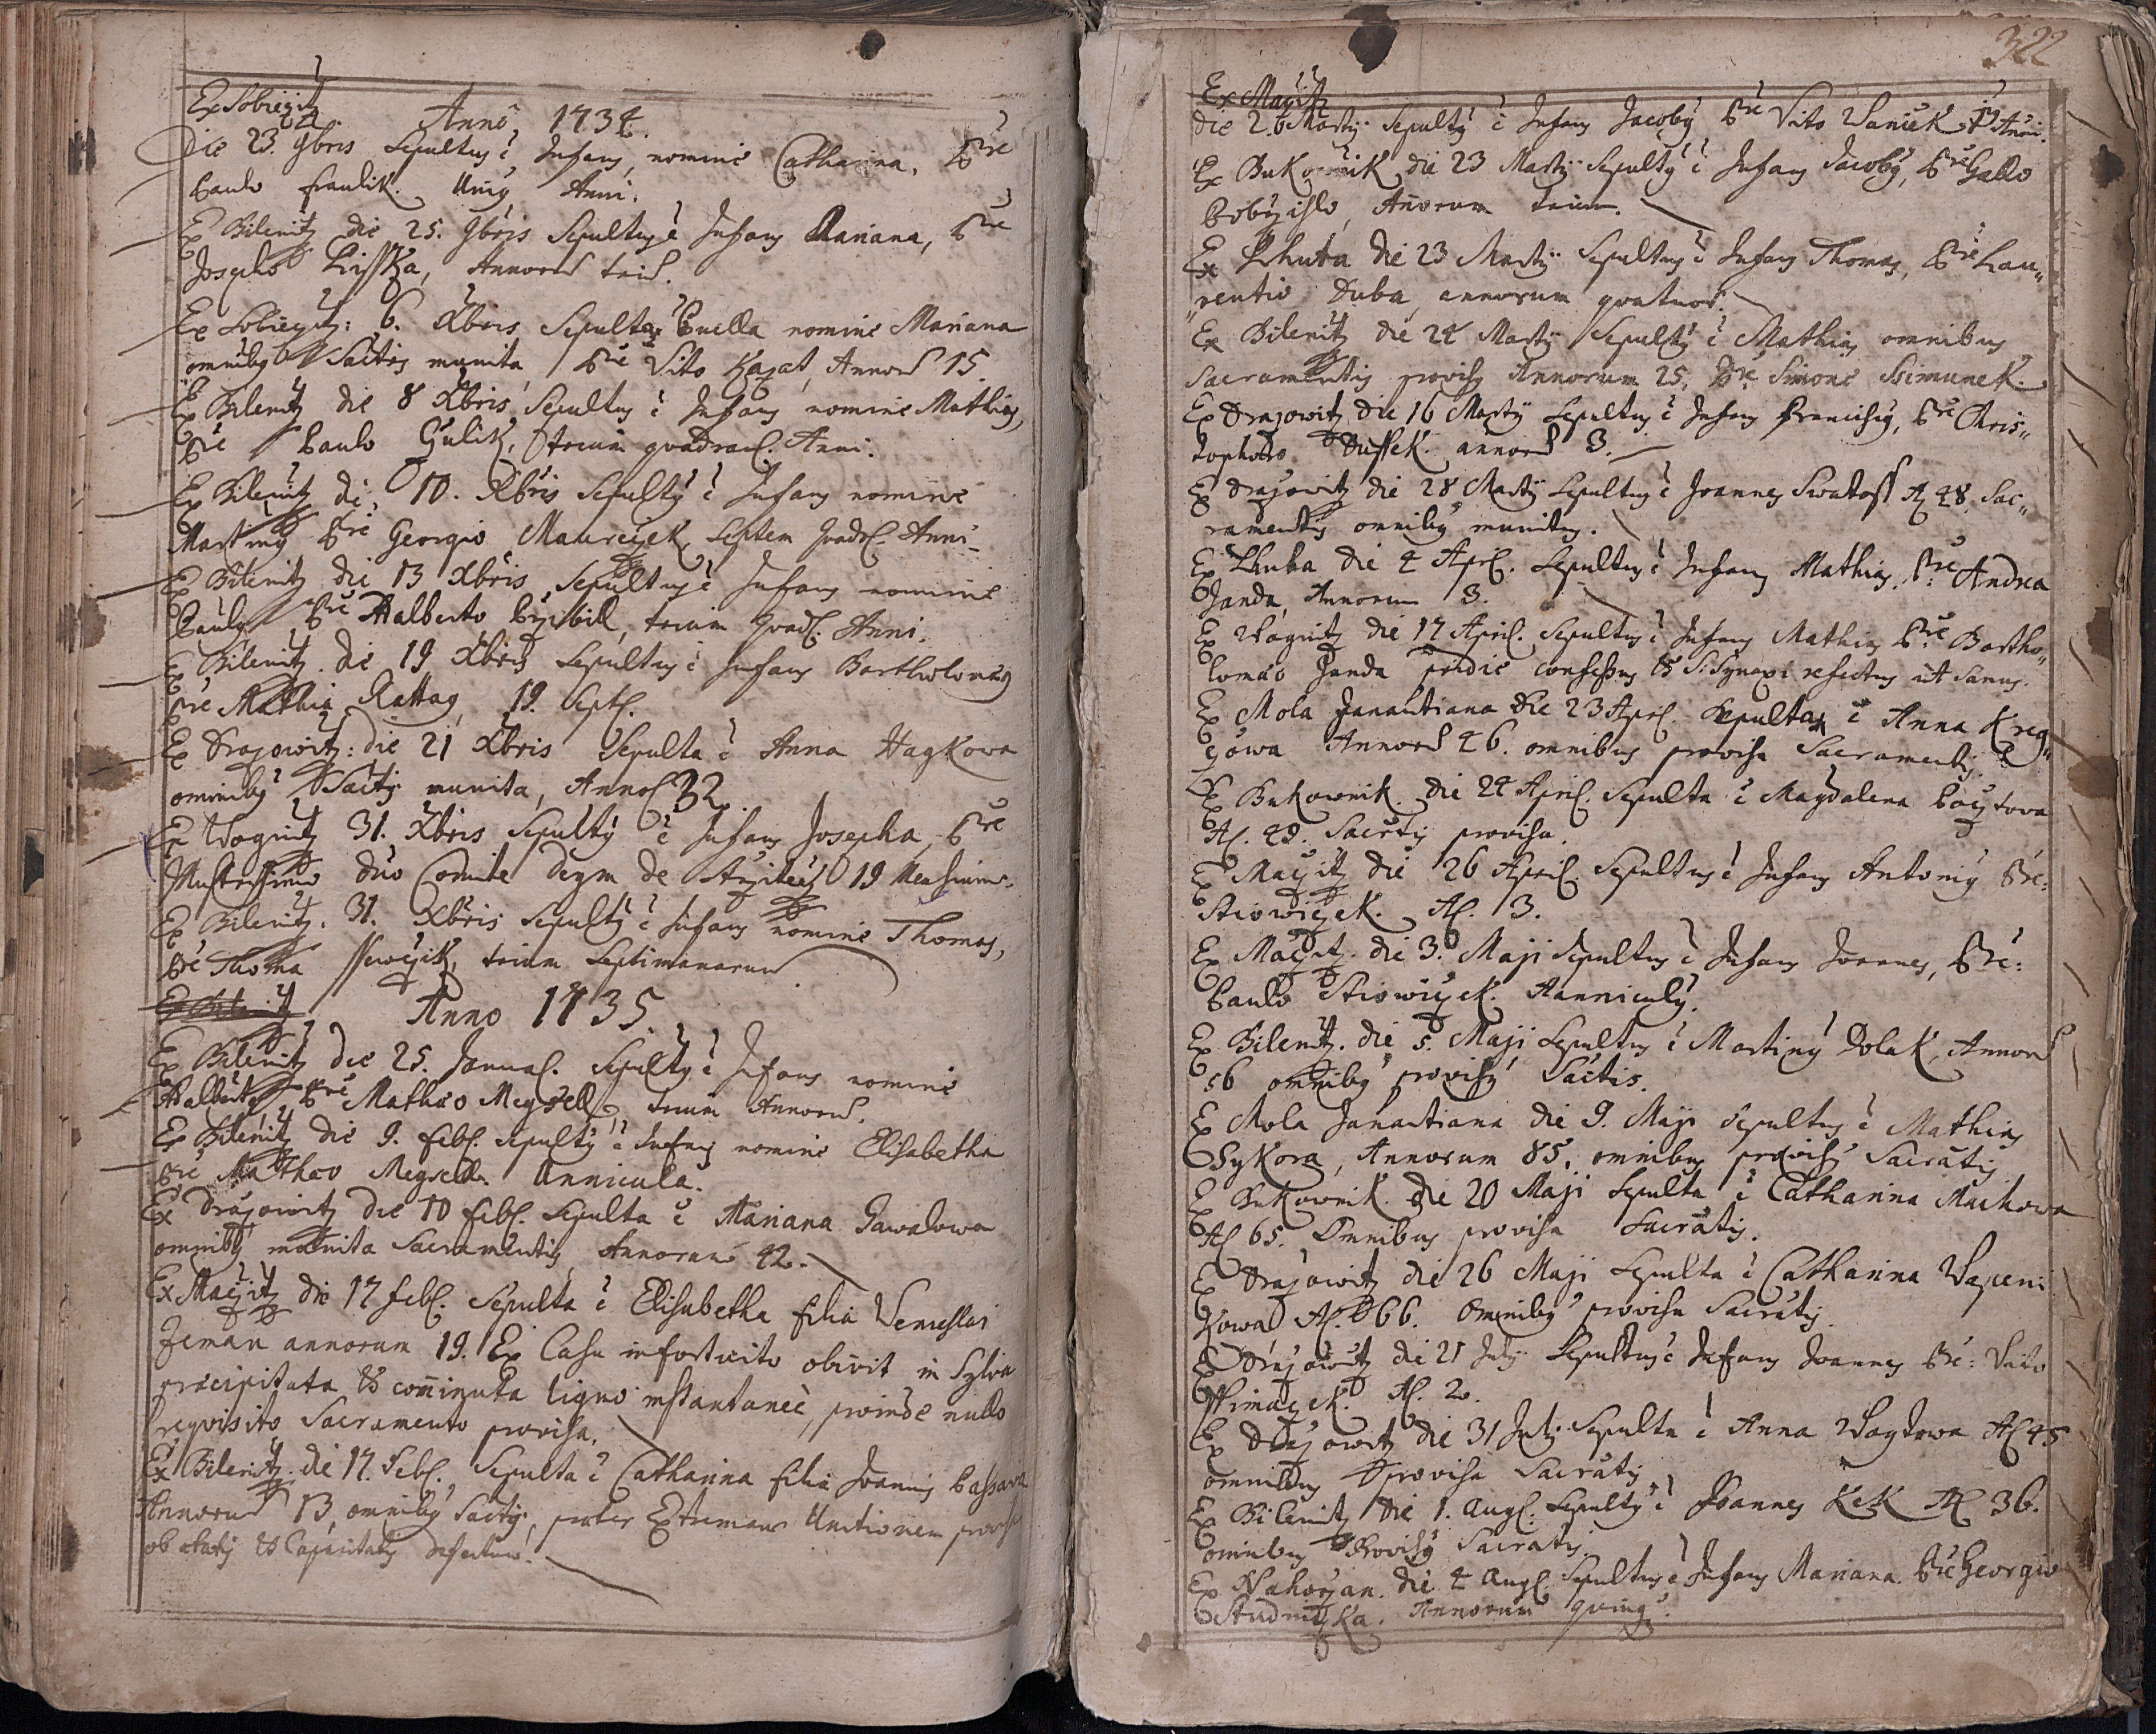 Ex Sobiegitz
Anno 1734.
Die 23. 9bris Sepultus ē Infans, nomine Catharina, Pre
Paulo Fraulik. Unius Anni.
Ex Bilenitz die 25. 9bris Sepultus ē Infans Mariana, Pre
Josepho Lisska, Annorum
Ex Sobiegitz: 6. Xbris Sepulta Puella nomine Mariana
omnibus Sacramentis munita Pre Vito Annorum 15.
Ex Bilenitz die 8 Xbris Sepultus ē Infans nomine Mathias,
Pre Paulo Gulik, trium quadrant. Anni.
Ex Bilenitz die 10. Xbris Sepultus ē Infans nomine
Martinus Pre Georgio Septem Anni
Ex Bilenitz die 13 Xbris Sepultus ē Infans nomine
Paulus Pre Adalberto trium Anni.
Ex Bilenitz die 19 Xbris Sepultus ē Infans Bartholomæus
Pre Mathia Rattag 19. Sept.
Ex Drazowitz: die 21 Xbris Sepulta ē Anna Hagkowa
omnibus Sactis munita, Annor. 32.
Ex Wognitz 31. Xbris Sepultus ē Infans Josepha, Pre
Illustrissimo Dno Comite Deym de 19 Mensium.
Ex Bilenitz. 31. Xbris Sepultus ē Infans nomine Thomas,
Pre Thoma trium Septimanarum
Ex Bilenitz
Anno 1735.
Ex Bilenitz die 25. Januar. Sepultus ē Infans nomine
Adalbertus Pre Mathæo Megsell, trium Annorum.
Ex Bilenitz die 9. febr. Sepultus ē Infans nomine Elisabetha
Pre Mathæo Megsell. Annicula.
Ex Drazowitz die 10 febr. Sepulta ē Mariana
omnibus munita Sacramentis, Annorum 42.
Ex Maczitz die 17 febr. Sepulta ē Elisabetha filia Venceslai
Zeman annorum 19. Ex Casu infortuito obivit in Sylva
præcipitata & comminuta ligno instantaneè, proinde nullo
requisito Sacramento provisa.
Ex Bilenitz die 17. Febr. Sepulta ē Catharina filia Joannis
Annorum 13, omnibus Sactis, præter Extremam Unctionem
ob ætatis & Capacitatis defectum.
322
Ex Maczitz
die 2. Martij Sepultus ē Infans Jacobus Pre Vito Vaniek
Ex Bukownik die 23 Martij Sepultus ē Infans Jacobus, Pre Gallo
Annorum trium.
Ex Lhuta die 23 Martij Sepultus ē Infans Thomas, Pre Lau„
„rentio Duba, annorum quatuor.
Ex Bilenitz die 24 Martij Sepultus ē Mathias omnibus
Sacramentis provisus Annorum 25, Pre Simone Ssimunek.
Ex Drazowitz die 16 Martij Sepultus ē Infans Franciscus, Pre Chris„
tophoro Dussek. annorum 3.
Ex Drazowitz die 28 Martij Sepultus ē Joannes Swatoss A. 48. Sac„
ramentis omnibus munitus.
Ex Lhuta die 4 Apr. Sepultus ē Infans Mathias, Pre Andrea
Janda, Annorum 3.
Ex Wognitz die 17 April. Sepultus ē Infans Mathias Pre Bartho„
lomæo Janda pridie confessus & S. Synaxi refectus ut Sanus.
Ex Mola Janautiana die 23 Apr. Sepulta ē Anna Kreg„
Annorum 46. omnibus provisa Sacramentis.
Ex Bukownik die 24 April. Sepulta ē Magdalena
A. 49. Sacrtis provisa.
Ex Maczitz die 26 April. Sepultus ē Infans Antonius Pre:
A. 3.
Ex Maczitz. die 3. Maji Sepultus ē Infans Joannes, Pre:
Paulo Anniculus.
Ex Bilenitz. die 5. Maji Sepultus ē Martinus Dolak, Annorum
56 omnibus provisus Sactis.
Ex Mola Janautiana die 9. Maji Sepultus ē Mathias
Sykora, Annorum 85, omnibus provisus Sacratis
Ex Bukownik die 20 Maji Sepulta ē Catharina Machowa
A. 65. Omnibus provisa Sacratis.
Ex Drazowitz die 26 Maji Sepulta ē Catharina
A. 66. Omnibus provisa Sacratis.
Ex Drazowitz die 21 July Sepultus ē Infans Joannes Pre: Vito
A. 2.
Ex Drazowitz die 31 July Sepulta ē Anna A. 45
omnibus provisa Sacratis
Ex Bilenitz die 1. Aug. Sepultus ē Joannes Kek A. 36.
omnibus Provisus Sacratis.
Ex Nahorzan. die 4 Aug. Sepultus ē Infans Mariana. Pre Georgio
Studniczka. Annorum quinq.